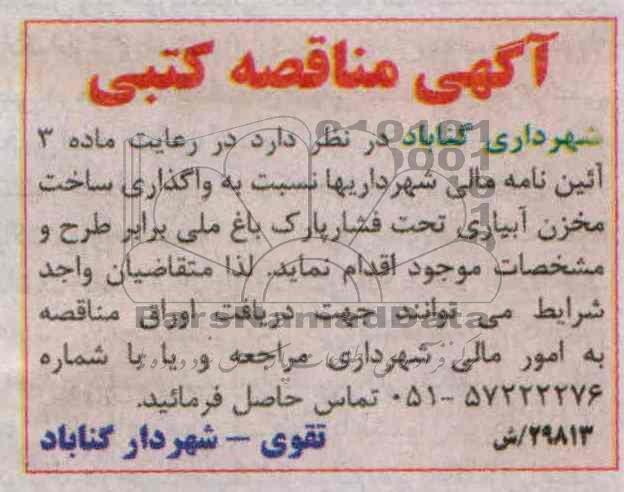 آگهی مناقصه کتبی
شهرداری گناباد در نظر دارد در رعایت ماده ۳
آئین نامه مالی شهرداریها نسبت به واگذاری ساخت
مخزن آبیاری تحت فشارپارک باغ ملی برابر طرح و
مشخصات موجود اقدام نماید. لذا متقاضیان واجد
شرایط می توانند جهت دریافت اوراق مناقصه
به امور مالی شهرداری مراجعه و یا با شماره
۰۵۱- ۵۷۲۲۲۲۷۶ تماس حاصل فرمائید.
۲۹۸۱۳/ش
تقوی – شهردار گناباد
ParsNamadData